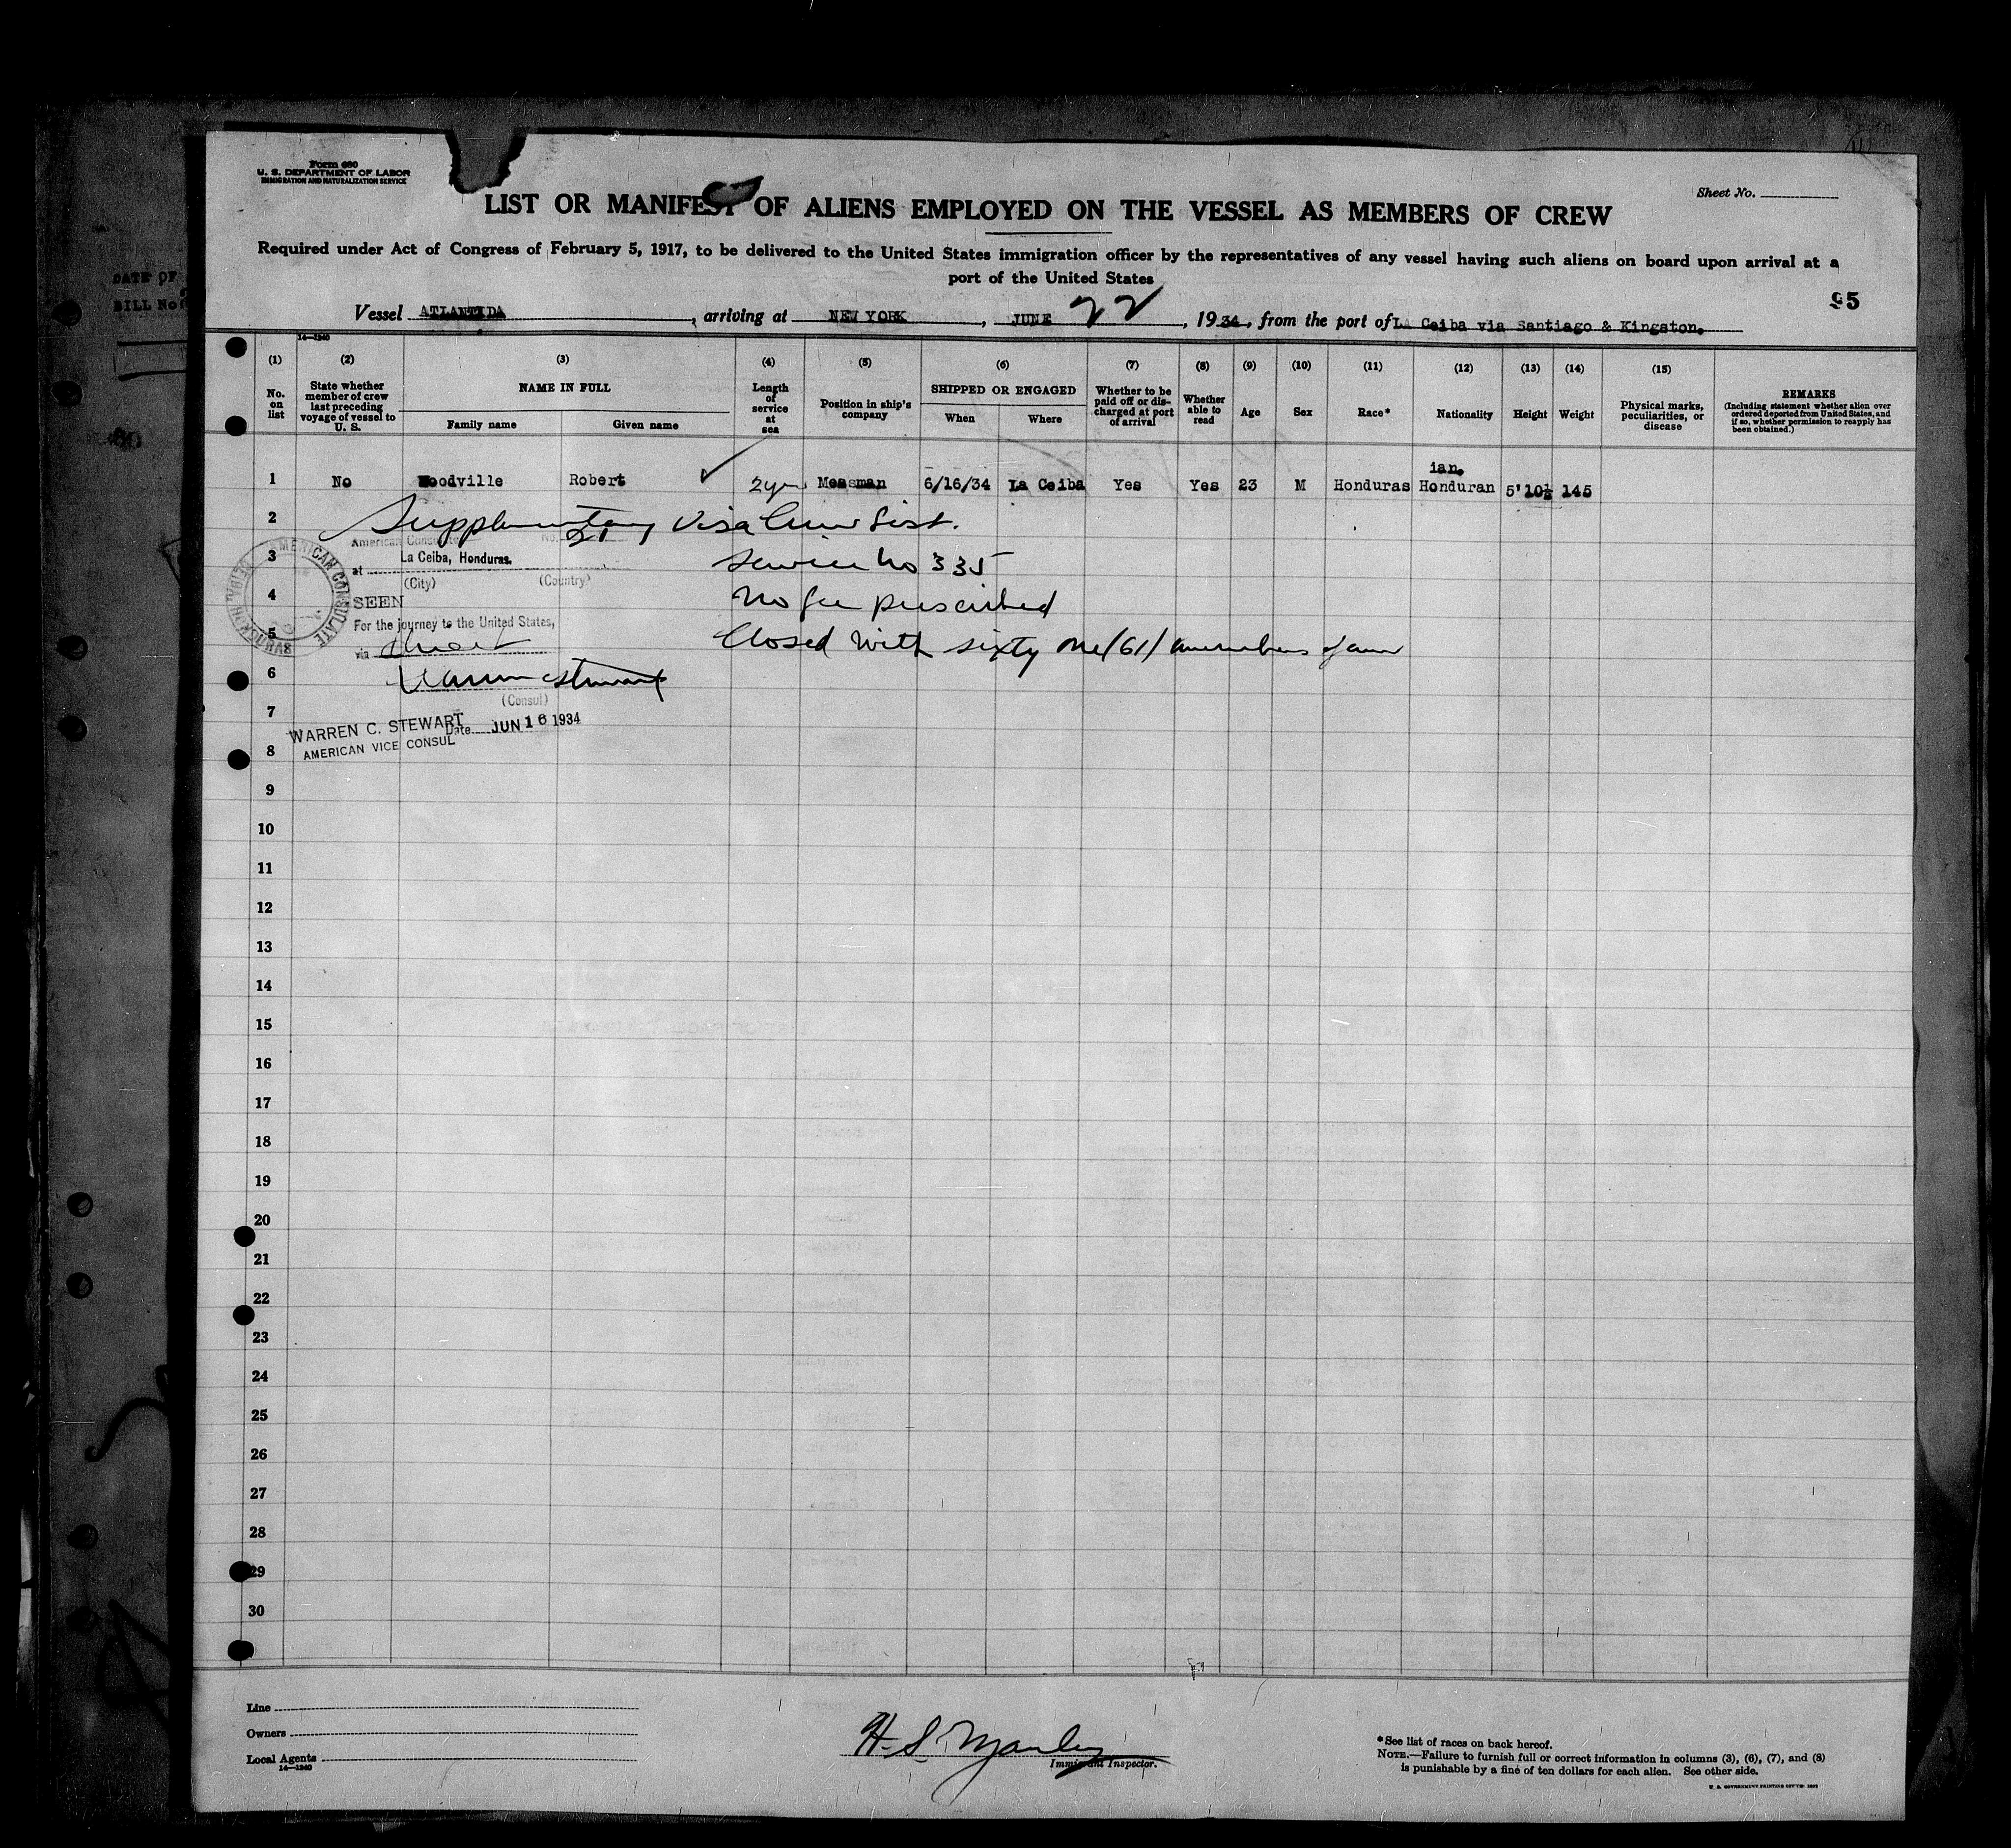 DATE OF
BILL No
Form 680
U. S. DEPARTMENT OF LABOR
IMMIGRATION AND NATURALIZATION SERVICE
Sheet No.
LIST OR MANIFEST OF ALIENS EMPLOYED ON THE VESSEL AS MEMBERS OF CREW
Required under Act of Congress of February 5, 1917, to be delivered to the United States immigration officer by the representatives of any vessel having such aliens on board upon arrival at a
port of the United States
95
Vessel ATLANTIDA, arriving at NEW YORK, JUNE 22, 1934, from the port of LA Ceiba via Santiago & Kingston.
14—1240
(1) (2) (3) (4) (5) (6) (7) (8) (9) (10) (11) (12) (13) (14) (15)
No. on list
State whether member of crew last preceding voyage of vessel to U. S.
NAME IN FULL
Family name
Given name
Length of service at sea
Position in ship's company
SHIPPED OR ENGAGED
When
Where
Whether to be paid off or discharged at port of arrival
Whether able to read
Age
Sex
Race*
Nationality
Height
Weight
Physical marks, peculiarities, or disease
REMARKS
(Including statement whether alien ever ordered deported from United States, and if so, whether permission to reapply has been obtained.)
ian.
1 No Woodville Robert 2 yrs Messman 6/16/34 La Ceiba Yes Yes 23 M Honduras Honduran 5'10½ 145
2 Supplementary Visa Crew List.
American Consulate No. 21
3 La Ceiba, Honduras. Service No 335
at
(City) (Country)
AMERICAN CONSULATE
4 SEEN No fee prescribed
For the journey to the United States,
5 via direct Closed with sixty one (61) members of crew
6 Warren C Stewart
(Consul)
7
WARREN C. STEWART Date JUN 16 1934
8 AMERICAN VICE CONSUL
9
10
11
12
13
14
15
16
17
18
19
20
21
22
23
24
25
26
27
28
29
30
Line
Owners
Local Agents
14—1240
H. S. Manley
Immigrant Inspector.
*See list of races on back hereof.
NOTE.—Failure to furnish full or correct information in columns (3), (6), (7), and (8)
is punishable by a fine of ten dollars for each alien. See other side.